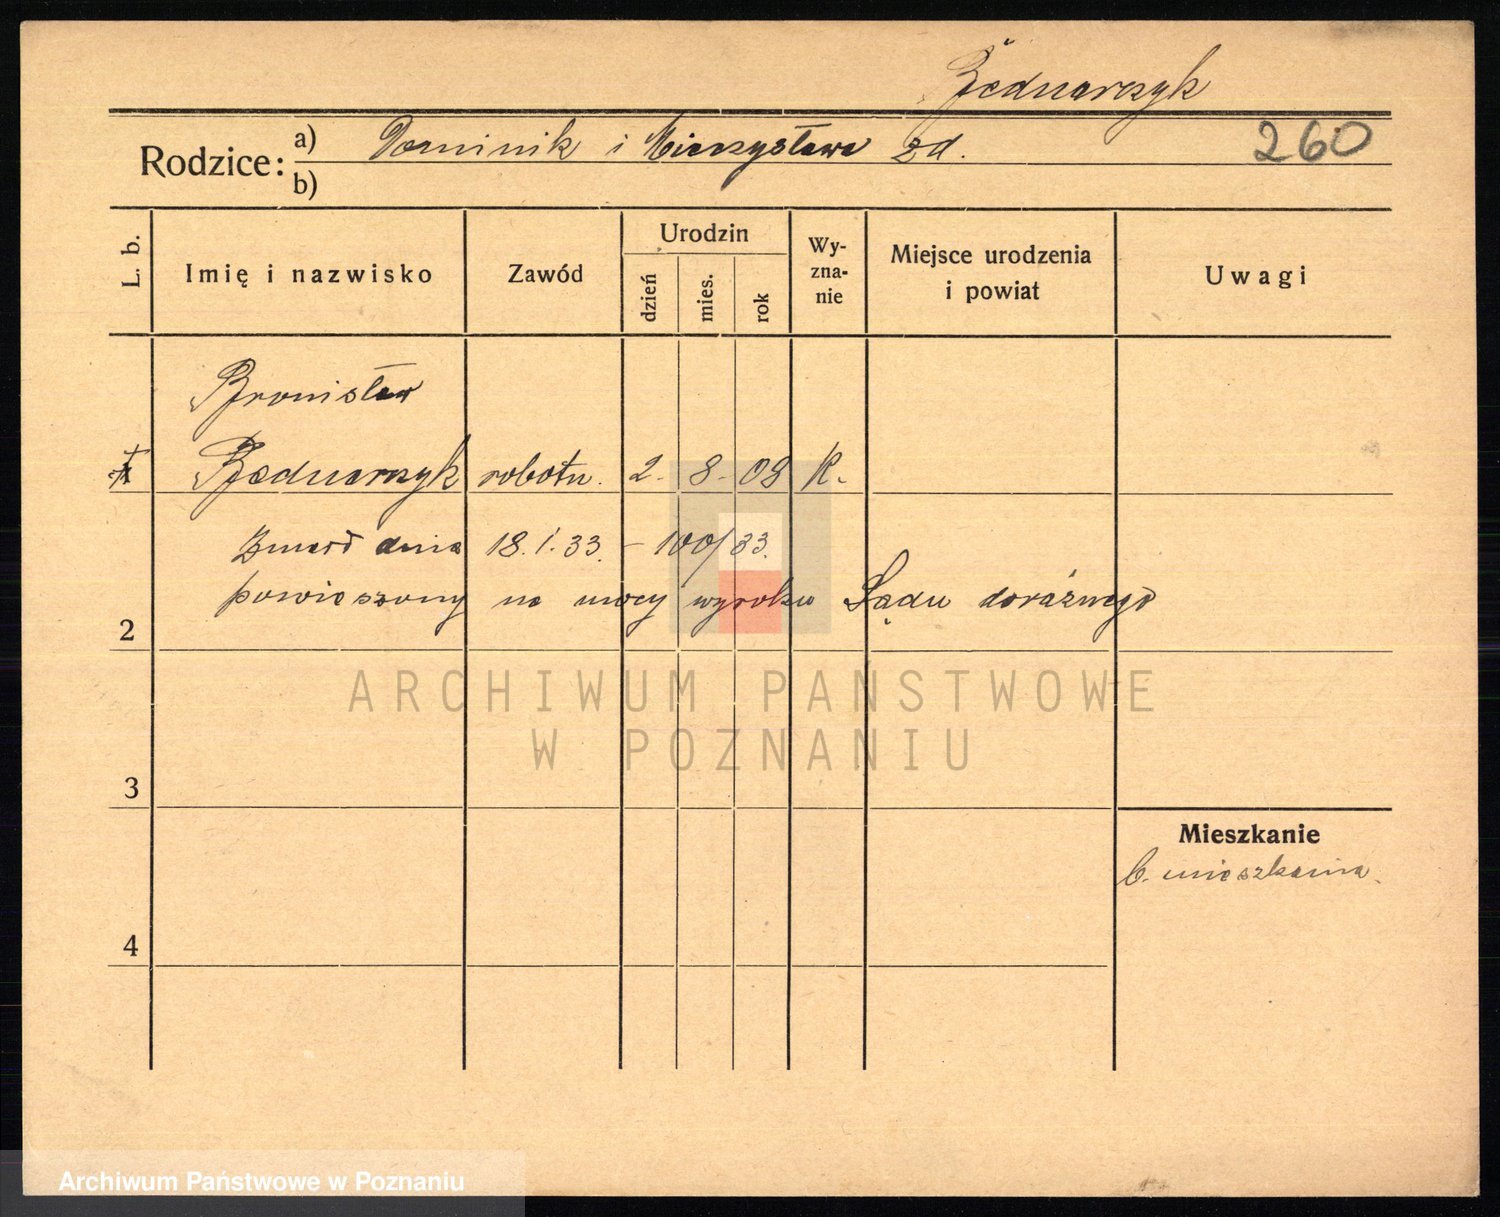 Bednarczyk
Rodzice: a) Dominik i Mieczysława zd. 260
b)
L. b. Imię i nazwisko Zawód Urodzin dzień mies. rok Wy-zna-nie Miejsce urodzenia i powiat Uwagi
Bronisław
1 Bednarczyk robotn. 2. 8. 08 K.
Zmarł dnia 18.1.33. – 100/33.
powieszony na mocy wyroku Sądu doraźnego
2
ARCHIWUM PAŃSTWOWE
W POZNANIU
3
Mieszkanie
b. mieszkania.
4
Archiwum Państwowe w Poznaniu